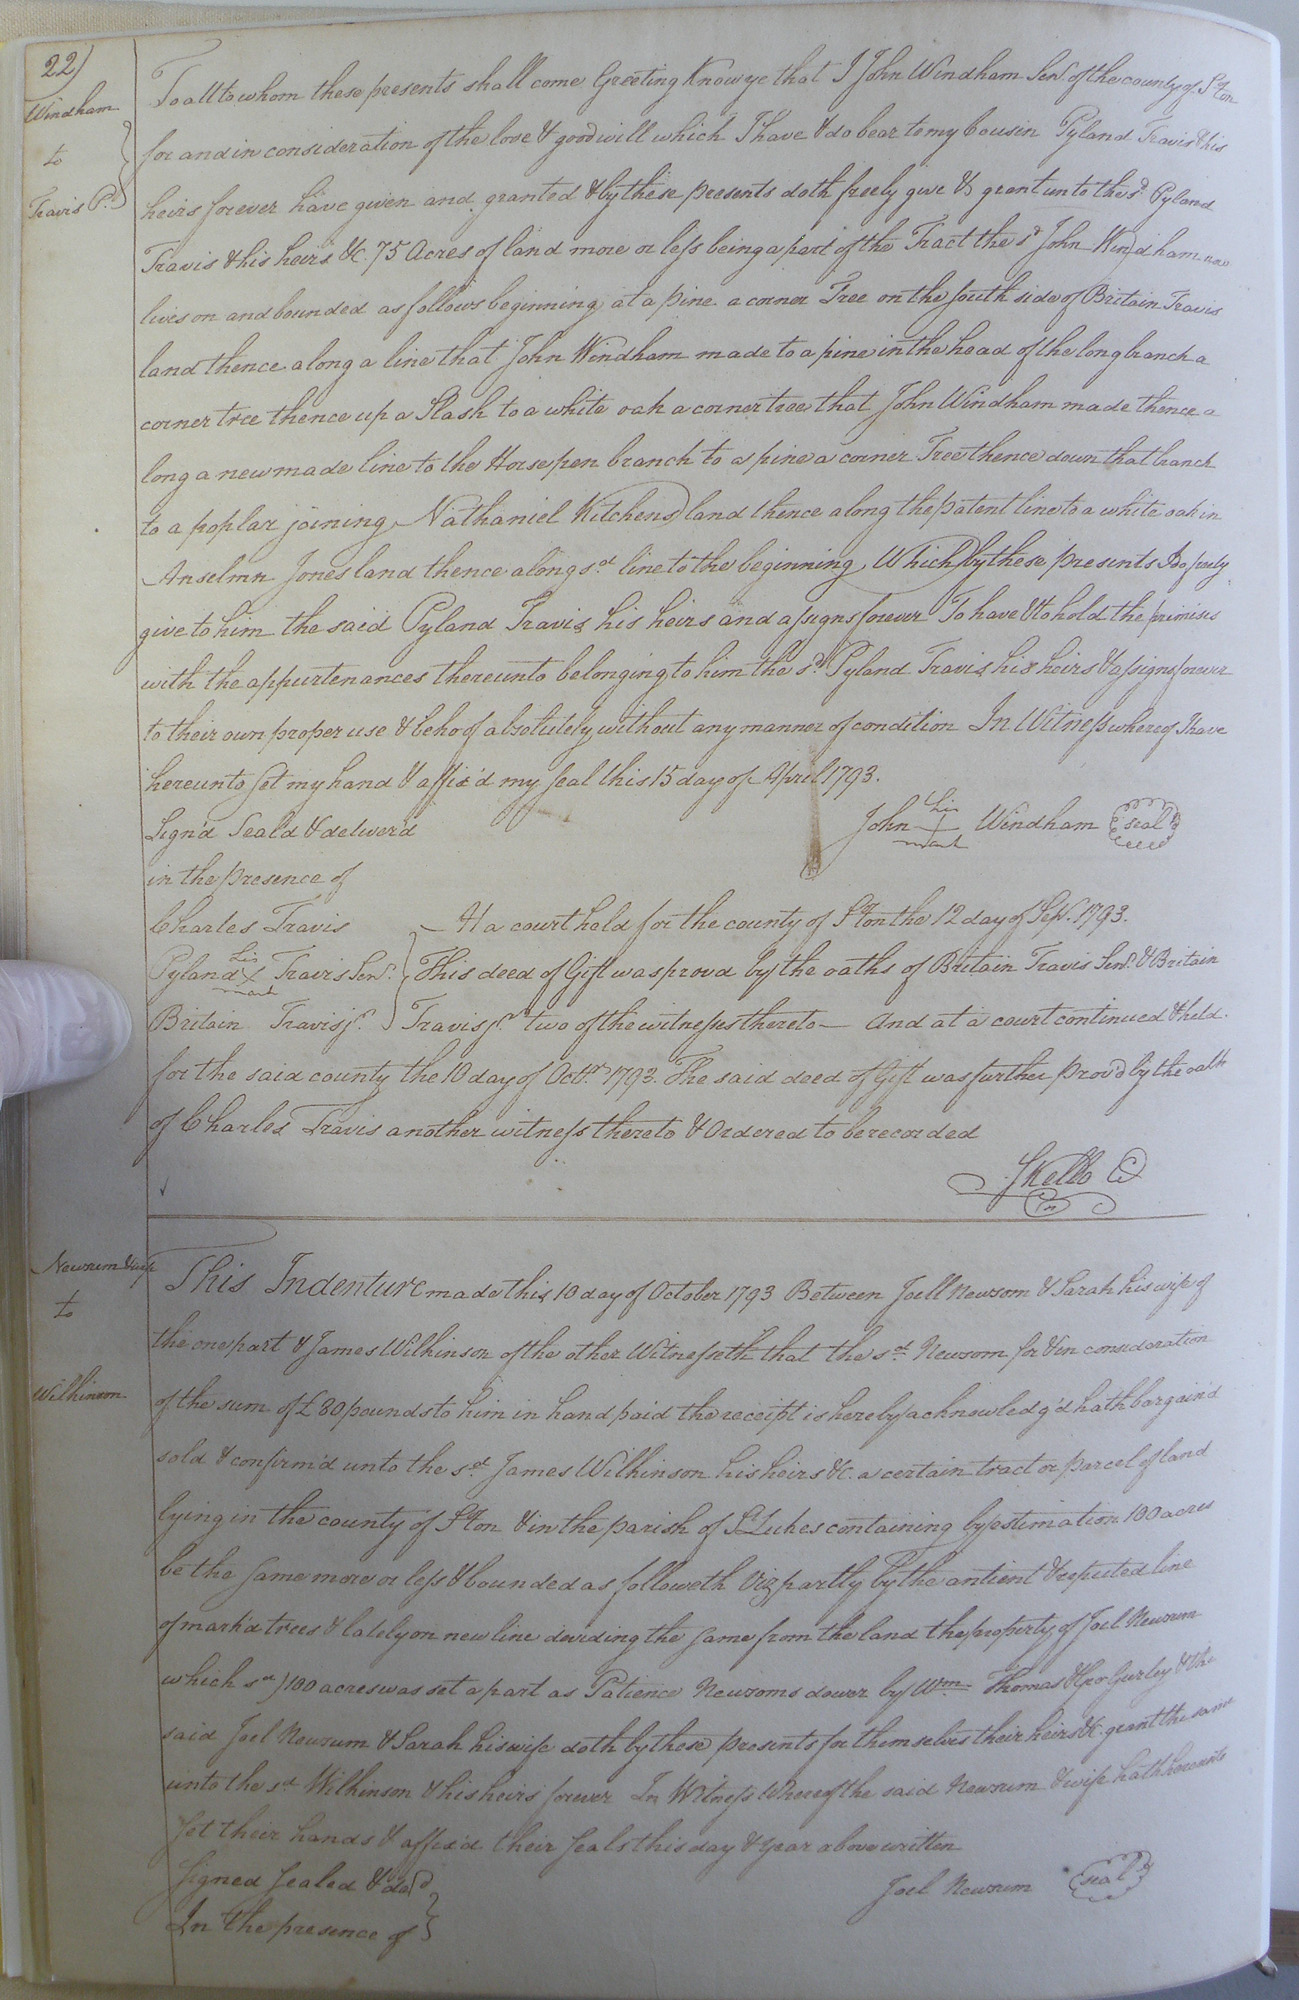 22)
Windham
to
Travis P.
To all to whom these presents shall come Greeting Know ye that I John Windham Senr of the county of S°ton
for and in consideration of the love & good will which I have & do bear to my Cousin Pyland Travis & his
heirs forever have given and granted & by these presents doth freely give & grant unto the sd Pyland
Travis & his heirs &c. 75 Acres of land more or less being a part of the Tract the sd John Windham now
lives on and bounded as follows beginning at a pine a corner Tree on the south side of Britain Travis
land thence along a line that John Windham made to a pine in the head of the long branch a
corner tree thence up a Slash to a white oak a corner tree that John Windham made thence a
long a new made line to the Horsepen branch to a pine a corner Tree thence down that branch
to a poplar joining Nathaniel Kitchens land thence along the patent line to a white oak in
Anselmn Jones land thence along sd line to the beginning Which by these presents I do freely
give to him the said Pyland Travis his heirs and assigns forever To have & to hold the primises
with the appurtenances thereunto belonging to him the sd Pyland Travis his heirs & assigns forever
to their own proper use & behoof absolutely without any manner of condition In Witness whereof I have
hereunto set my hand & affix'd my seal this 15 day of April 1793.
Sign'd Seal'd & deliver'd
in the presence of
John his + mark Windham seal
Charles Travis
Pyland his x mark Travis Senr.
Britain Travis jr.
At a court held for the county of S°ton the 12 day of Sept. 1793.
This deed of Gift was provd by the oaths of Britain Travis Senr. & Britain
Travis jr two of the witnesses thereto — And at a court continued & held
for the said county the 10 day of Octr. 1793. The said deed of Gift was further prov'd by the oath
of Charles Travis another witness thereto & Ordered to be recorded
S Kello C
Newsum & wife
to
Wilkinson
This Indenture made this 10 day of October 1793 Between Joell Newsom & Sarah his wife of
the one part & James Wilkinson of the other Witnesseth that the sd. Newsom for & in consideration
of the sum of £80 pounds to him in hand paid the receipt is hereby acknowledg'd hath bargain'd
sold & confirm'd unto the sd. James Wilkinson his heirs &c. a certain tract or parcel of land
lying in the county of S°ton & in the parish of St Lukes containing by estimation 100 acres
be the same more or less & bounded as followeth Viz partly by the antient & reputed line
of mark'd trees & lately on new line deviding the same from the land the property of Joel Newsum
which sd) 100 acres was set apart as Patience Newsoms dower by Wm. Thomas & Geo Gurley & the
said Joel Newsum & Sarah his wife doth by these presents for themselves their heirs &c. grant the same
unto the sd Wilkinson & his heirs forever In Witness Whereof the said Newsum & wife hath hereunto
set their hands & affix'd their seals this day & year above written
Signed sealed & deld
In the presence of
Joel Newsum seal